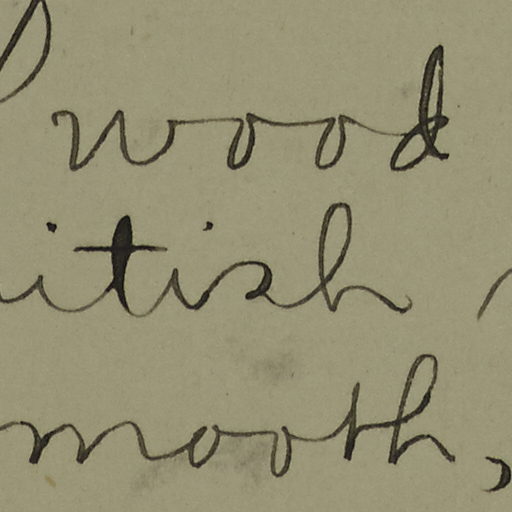 wood
itish
mooth,